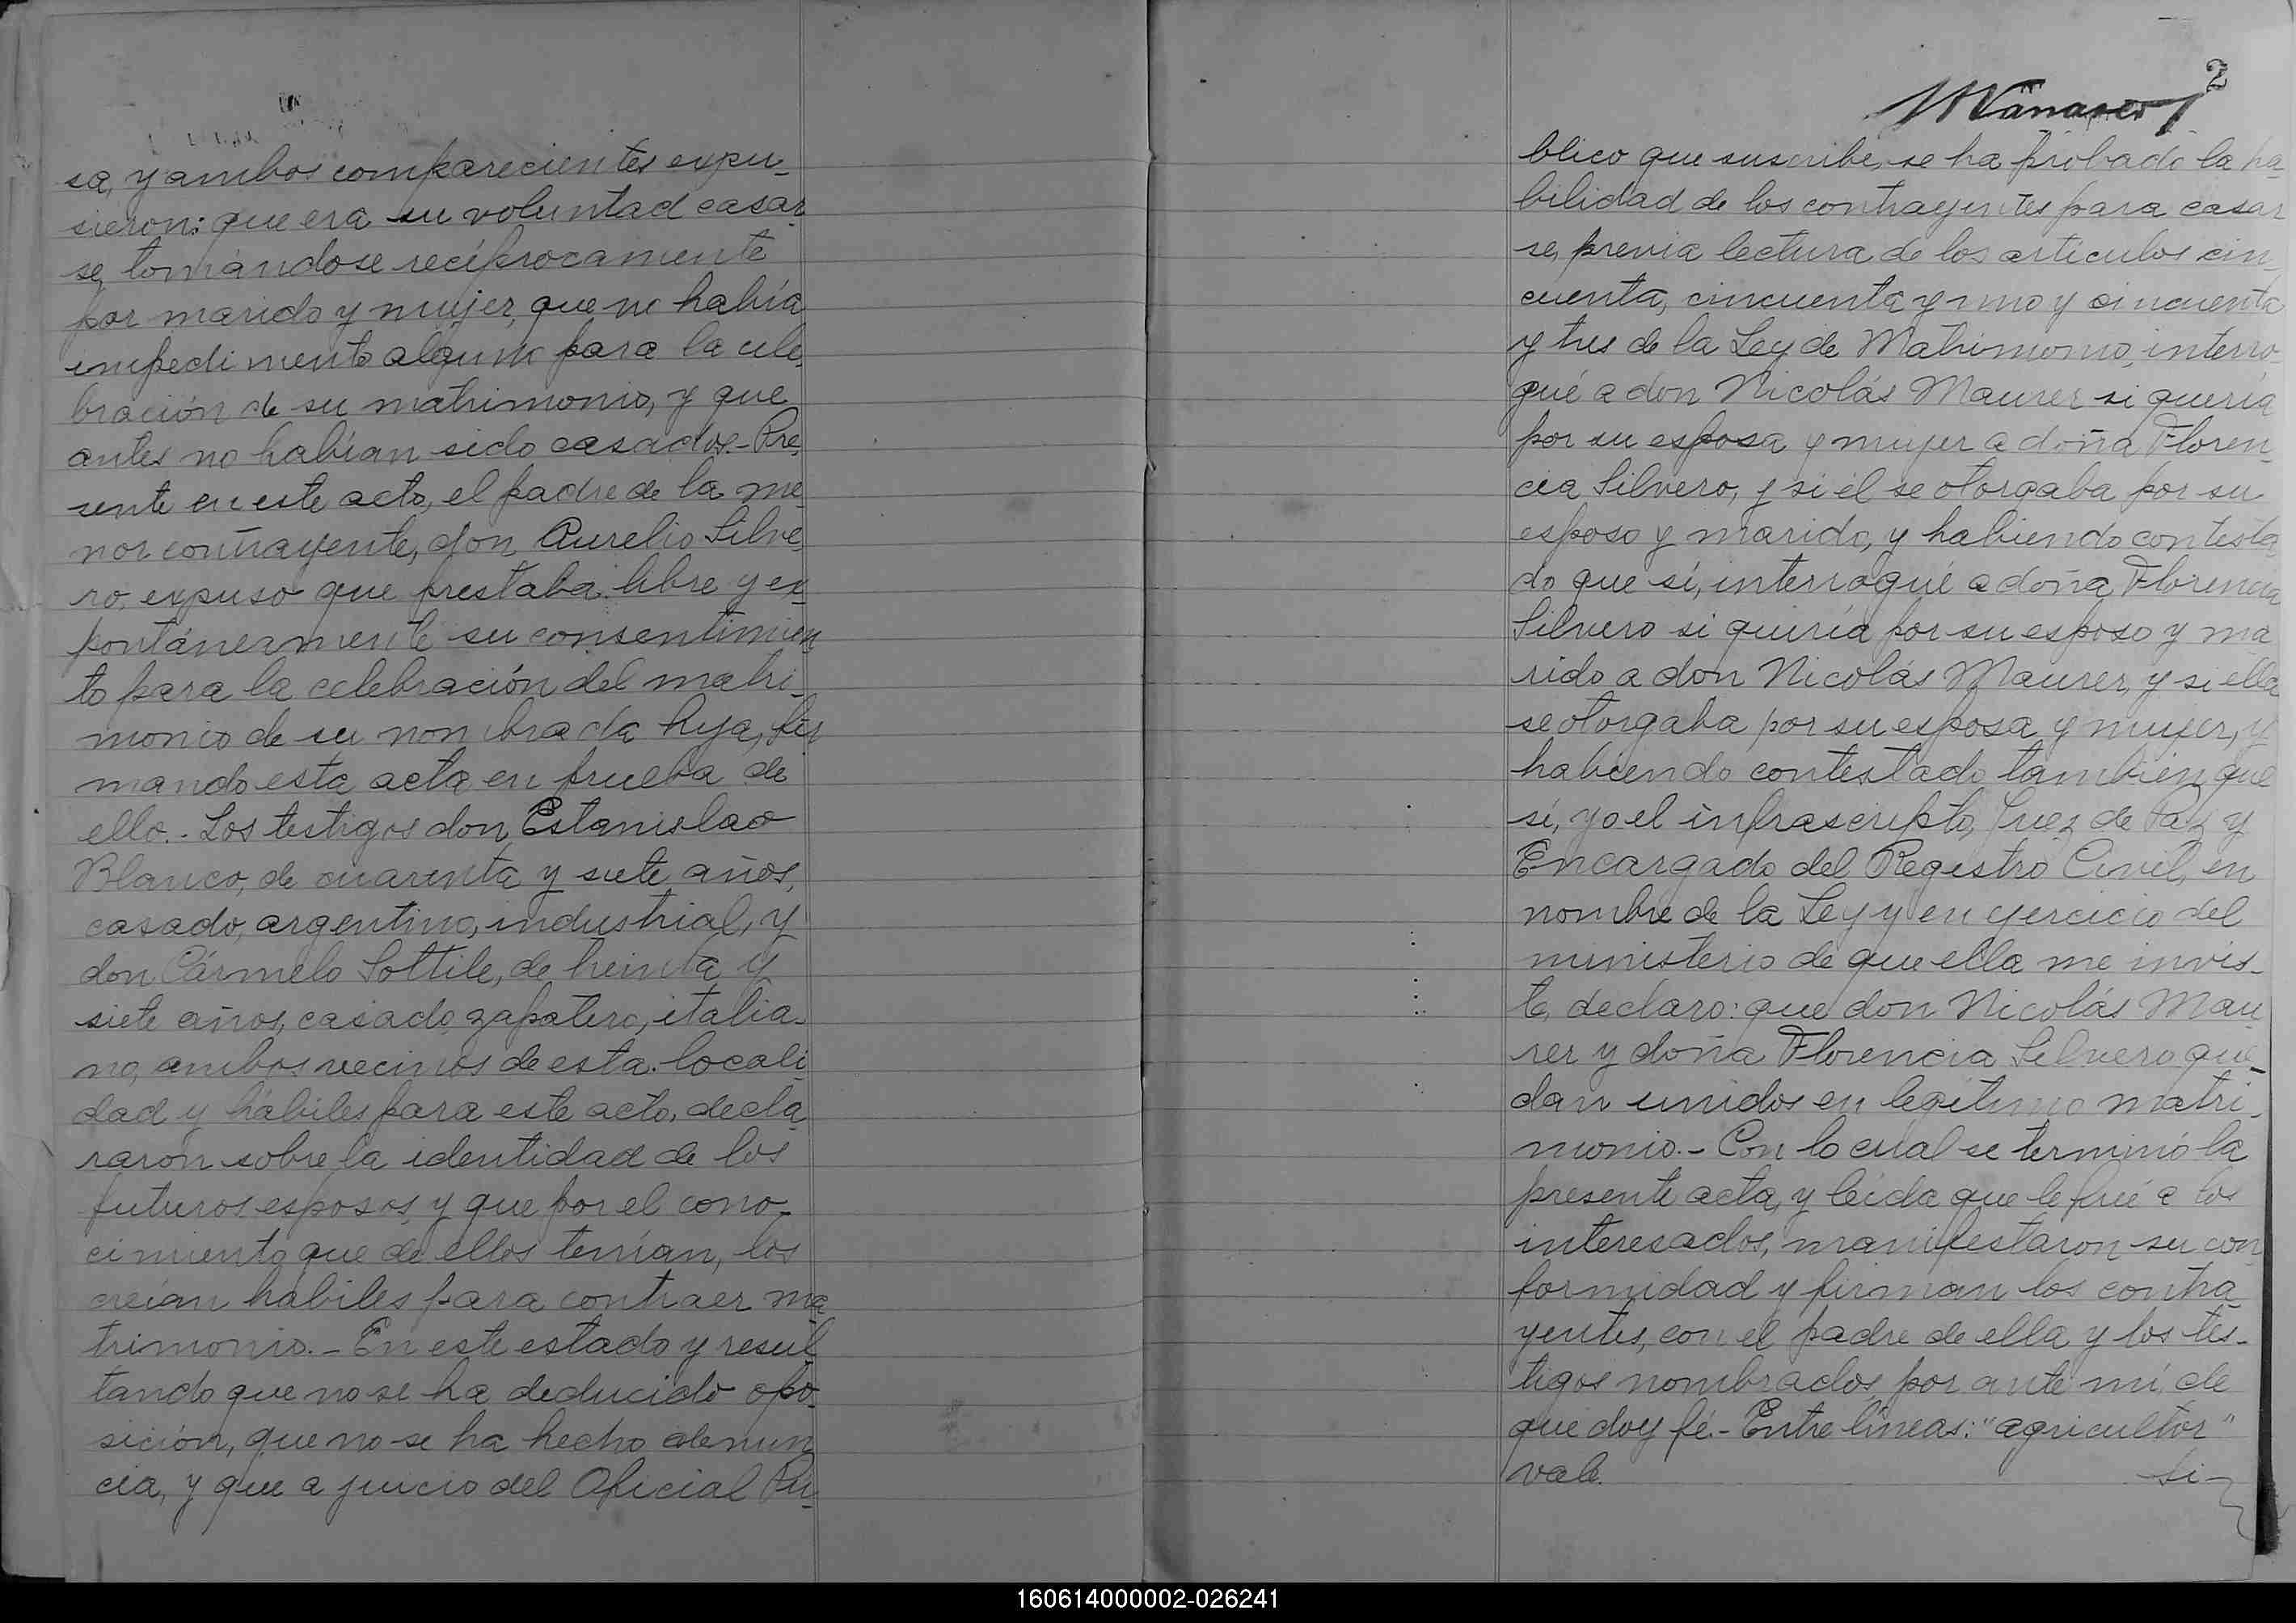 sa, y ambos comparecientes expu-
sieron: que era su voluntad casar-
se, tomándose recíprocamente
por marido y mujer, que no había
impedimento alguno para la cele-
bración de su matrimonio, y que
antes no habían sido casados.- Pre-
sente en este acto, el padre de la me-
nor contrayente, don Aurelio Silve-
ro, expuso que prestaba libre y es-
pontáneamente su consentimien-
to para la celebración del matri-
monio de su nombrada hija, fir-
mando esta acta en prueba de
ello.- Los testigos don Estanislao
Blanco, de cuarenta y siete años,
casado, argentino, industrial, y
don Cármelo Sottile, de treinta y
siete años, casado, zapatero, italia-
no, ambos vecinos de esta locali-
dad y hábiles para este acto, decla-
raron sobre la identidad de los
futuros esposos, y que por el cono-
cimiento que de ellos tenían, los
creían hábiles para contraer ma-
trimonio.- En este estado y resul-
tando que no se ha deducido opo-
sición, que no se ha hecho denun-
cia, y que a juicio del Oficial Pú-
2
blico que suscribe, se ha probado la ha-
bilidad de los contrayentes para casar-
se, previa lectura de los artículos cin-
cuenta, cincuenta y uno y cincuenta
y tres de la Ley de Matrimonio, interro-
gué a don Nicolás Maurer si quería
por su esposa y mujer a doña Floren-
cia Silvero, y si él se otorgaba por su
esposo y marido, y habiendo contesta-
do que sí, interrogué a doña Florencia
Silvero si quería por su esposo y ma-
rido a don Nicolás Maurer, y si ella
se otorgaba por su esposa y mujer, y
habiendo contestado también que
sí, yo el infrascripto, Juez de Paz y
Encargado del Registro Civil, en
nombre de la Ley y en ejercicio del
ministerio de que ella me invis-
te, declaro: que don Nicolás Mau-
rer y doña Florencia Silvero que-
dan unidos en legítimo matri-
monio.- Con lo cual se terminó la
presente acta, y leída que le fué a los
interesados, manifestaron su con-
formidad y firman los contra-
yentes, con el padre de ella y los tes-
tigos nombrados, por ante mí, de
que doy fé.- Entre líneas: "agricultor"
vale. si-
160614000002-026241